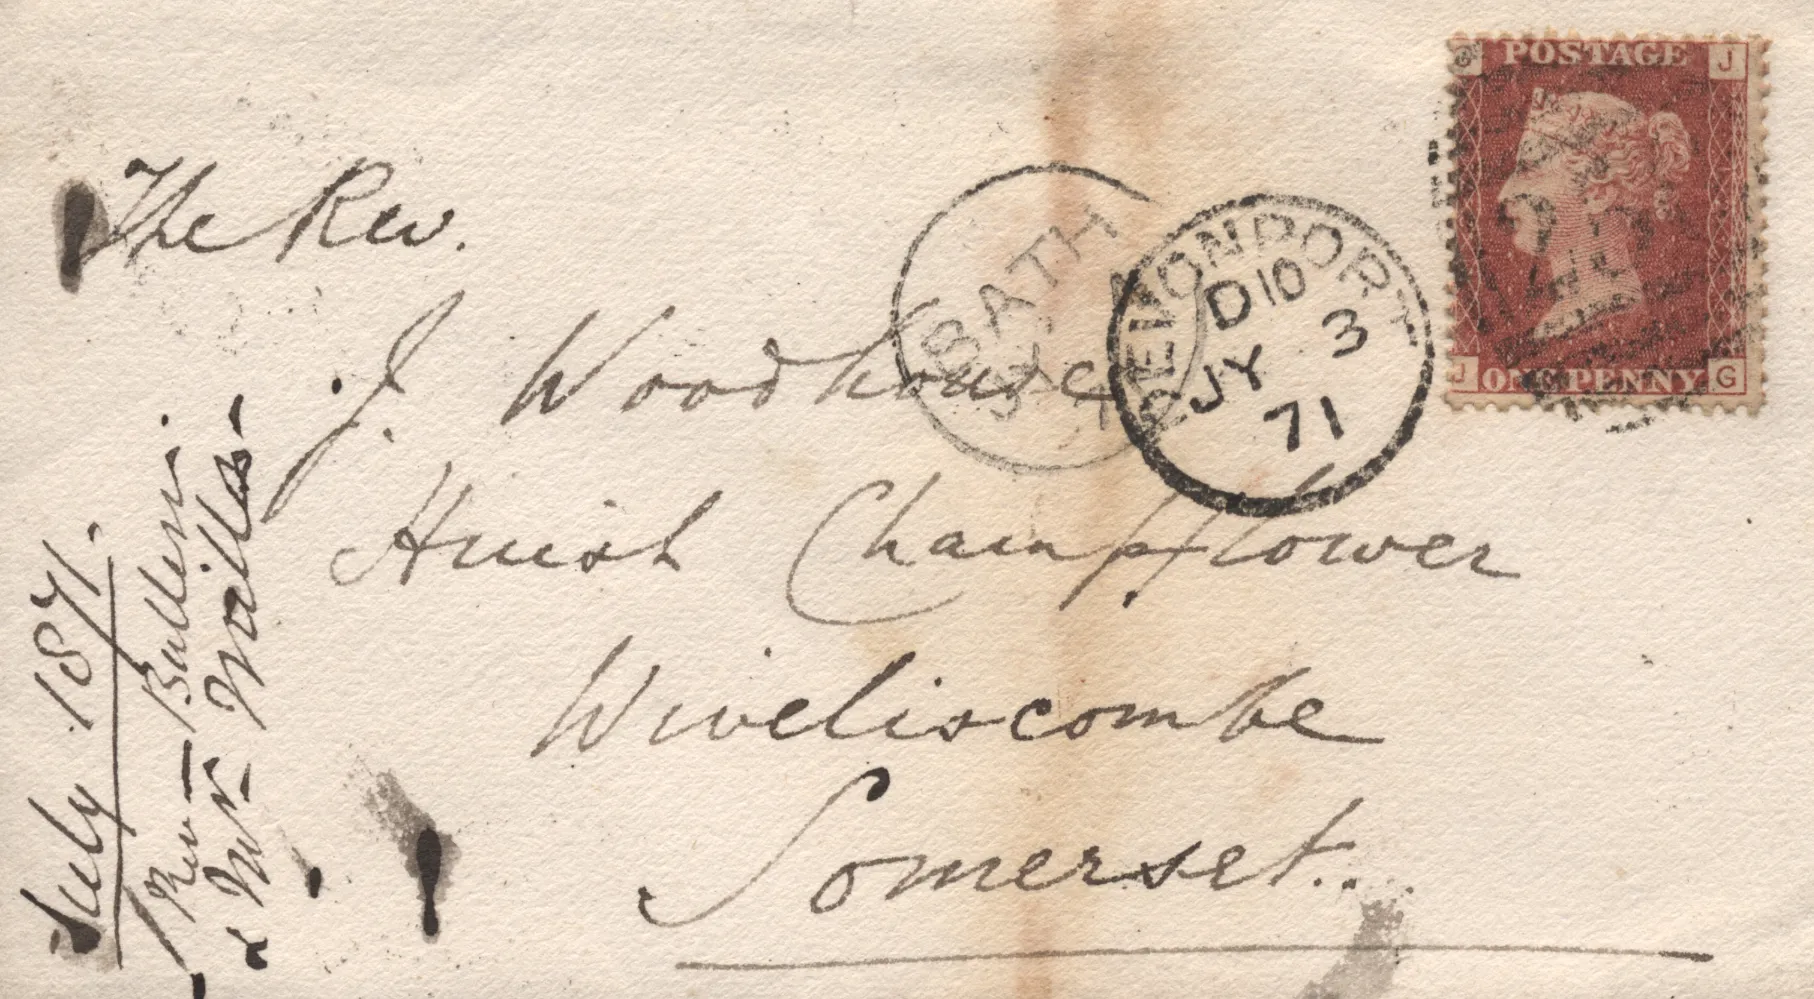 The Rev.
J. Woodhouse
Huish Champflower
Wiveliscombe
Somerset.
July 1871.
Rev
& Mr
BATH
JY
DEVONPORT
D10
JY 3
71
POSTAGE
J
J
ONE PENNY
G